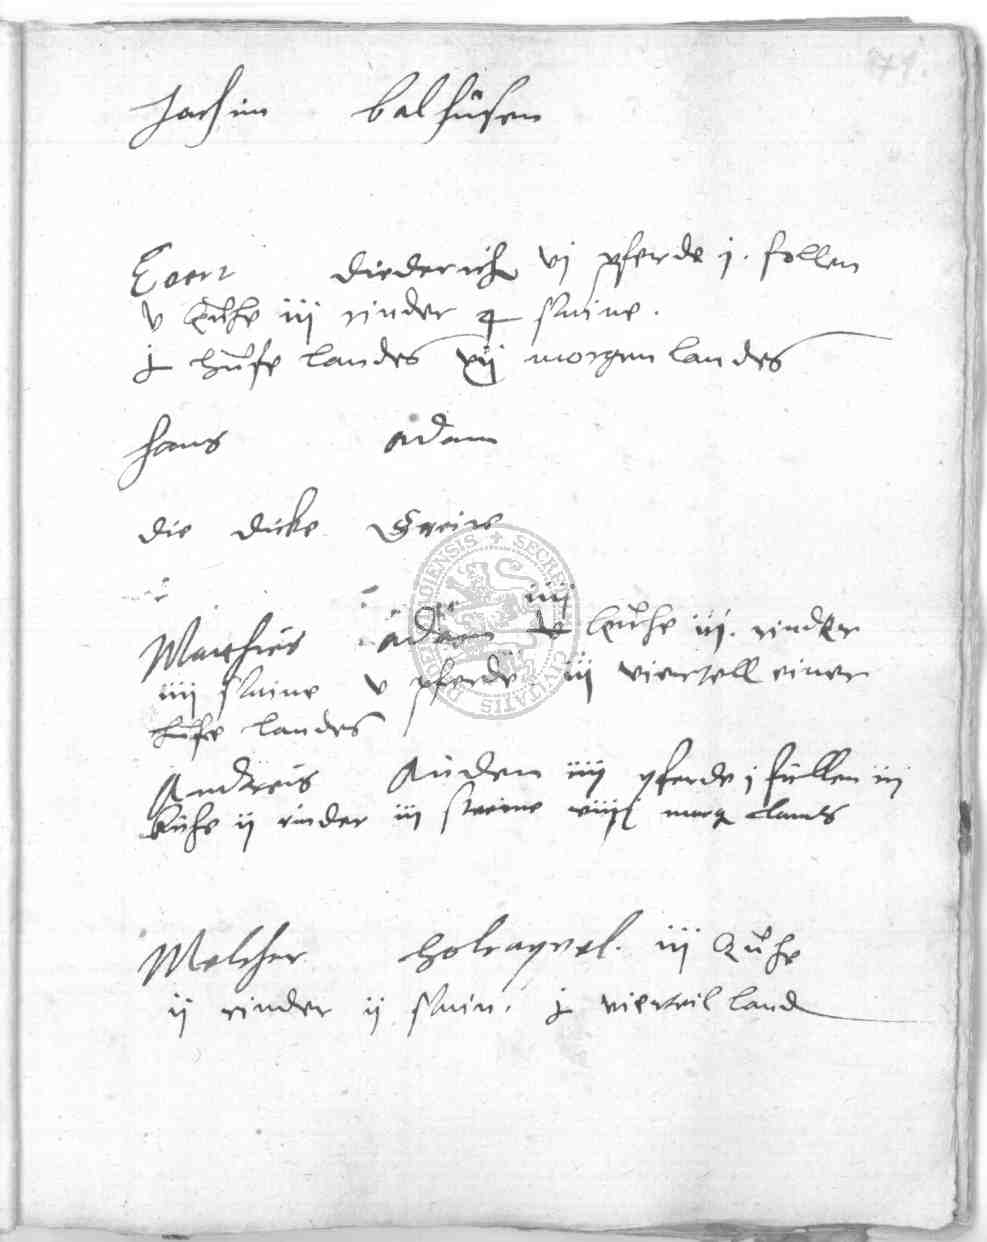 79.
Jochim balhusen
Evert Diederich vj pferde j. follen
v kuhe iij rinder 4 swine.
j hufe landes xij morgen landes
Hans Adam
die dicke Greite
iiij
Matthies Adam v kuhe iij. rinder
iiij swine v pferde iij viertell einer
hufe landes
Andreis Auden iiij pferde j fullen iij
kuhe ij rinder iij sweine viiij morg lants
Melcher holtappel. iij kuhe
ij rinder ij swin. j vierteil land
SECRET CIVITATIS